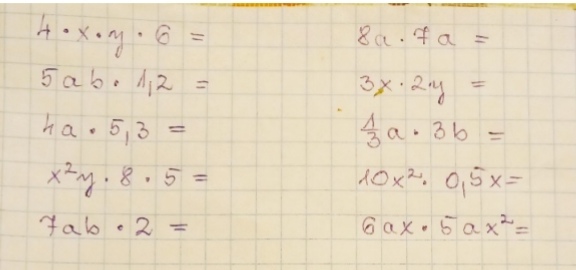 4 · x · y · 6 =
5ab · 1,2 =
4a · 5,3 =
x²y · 8 · 5 =
7ab · 2 =
8a · 7a =
3x · 2y =
1/3 a · 3b =
10x² · 0,5x =
6ax · 5ax² =